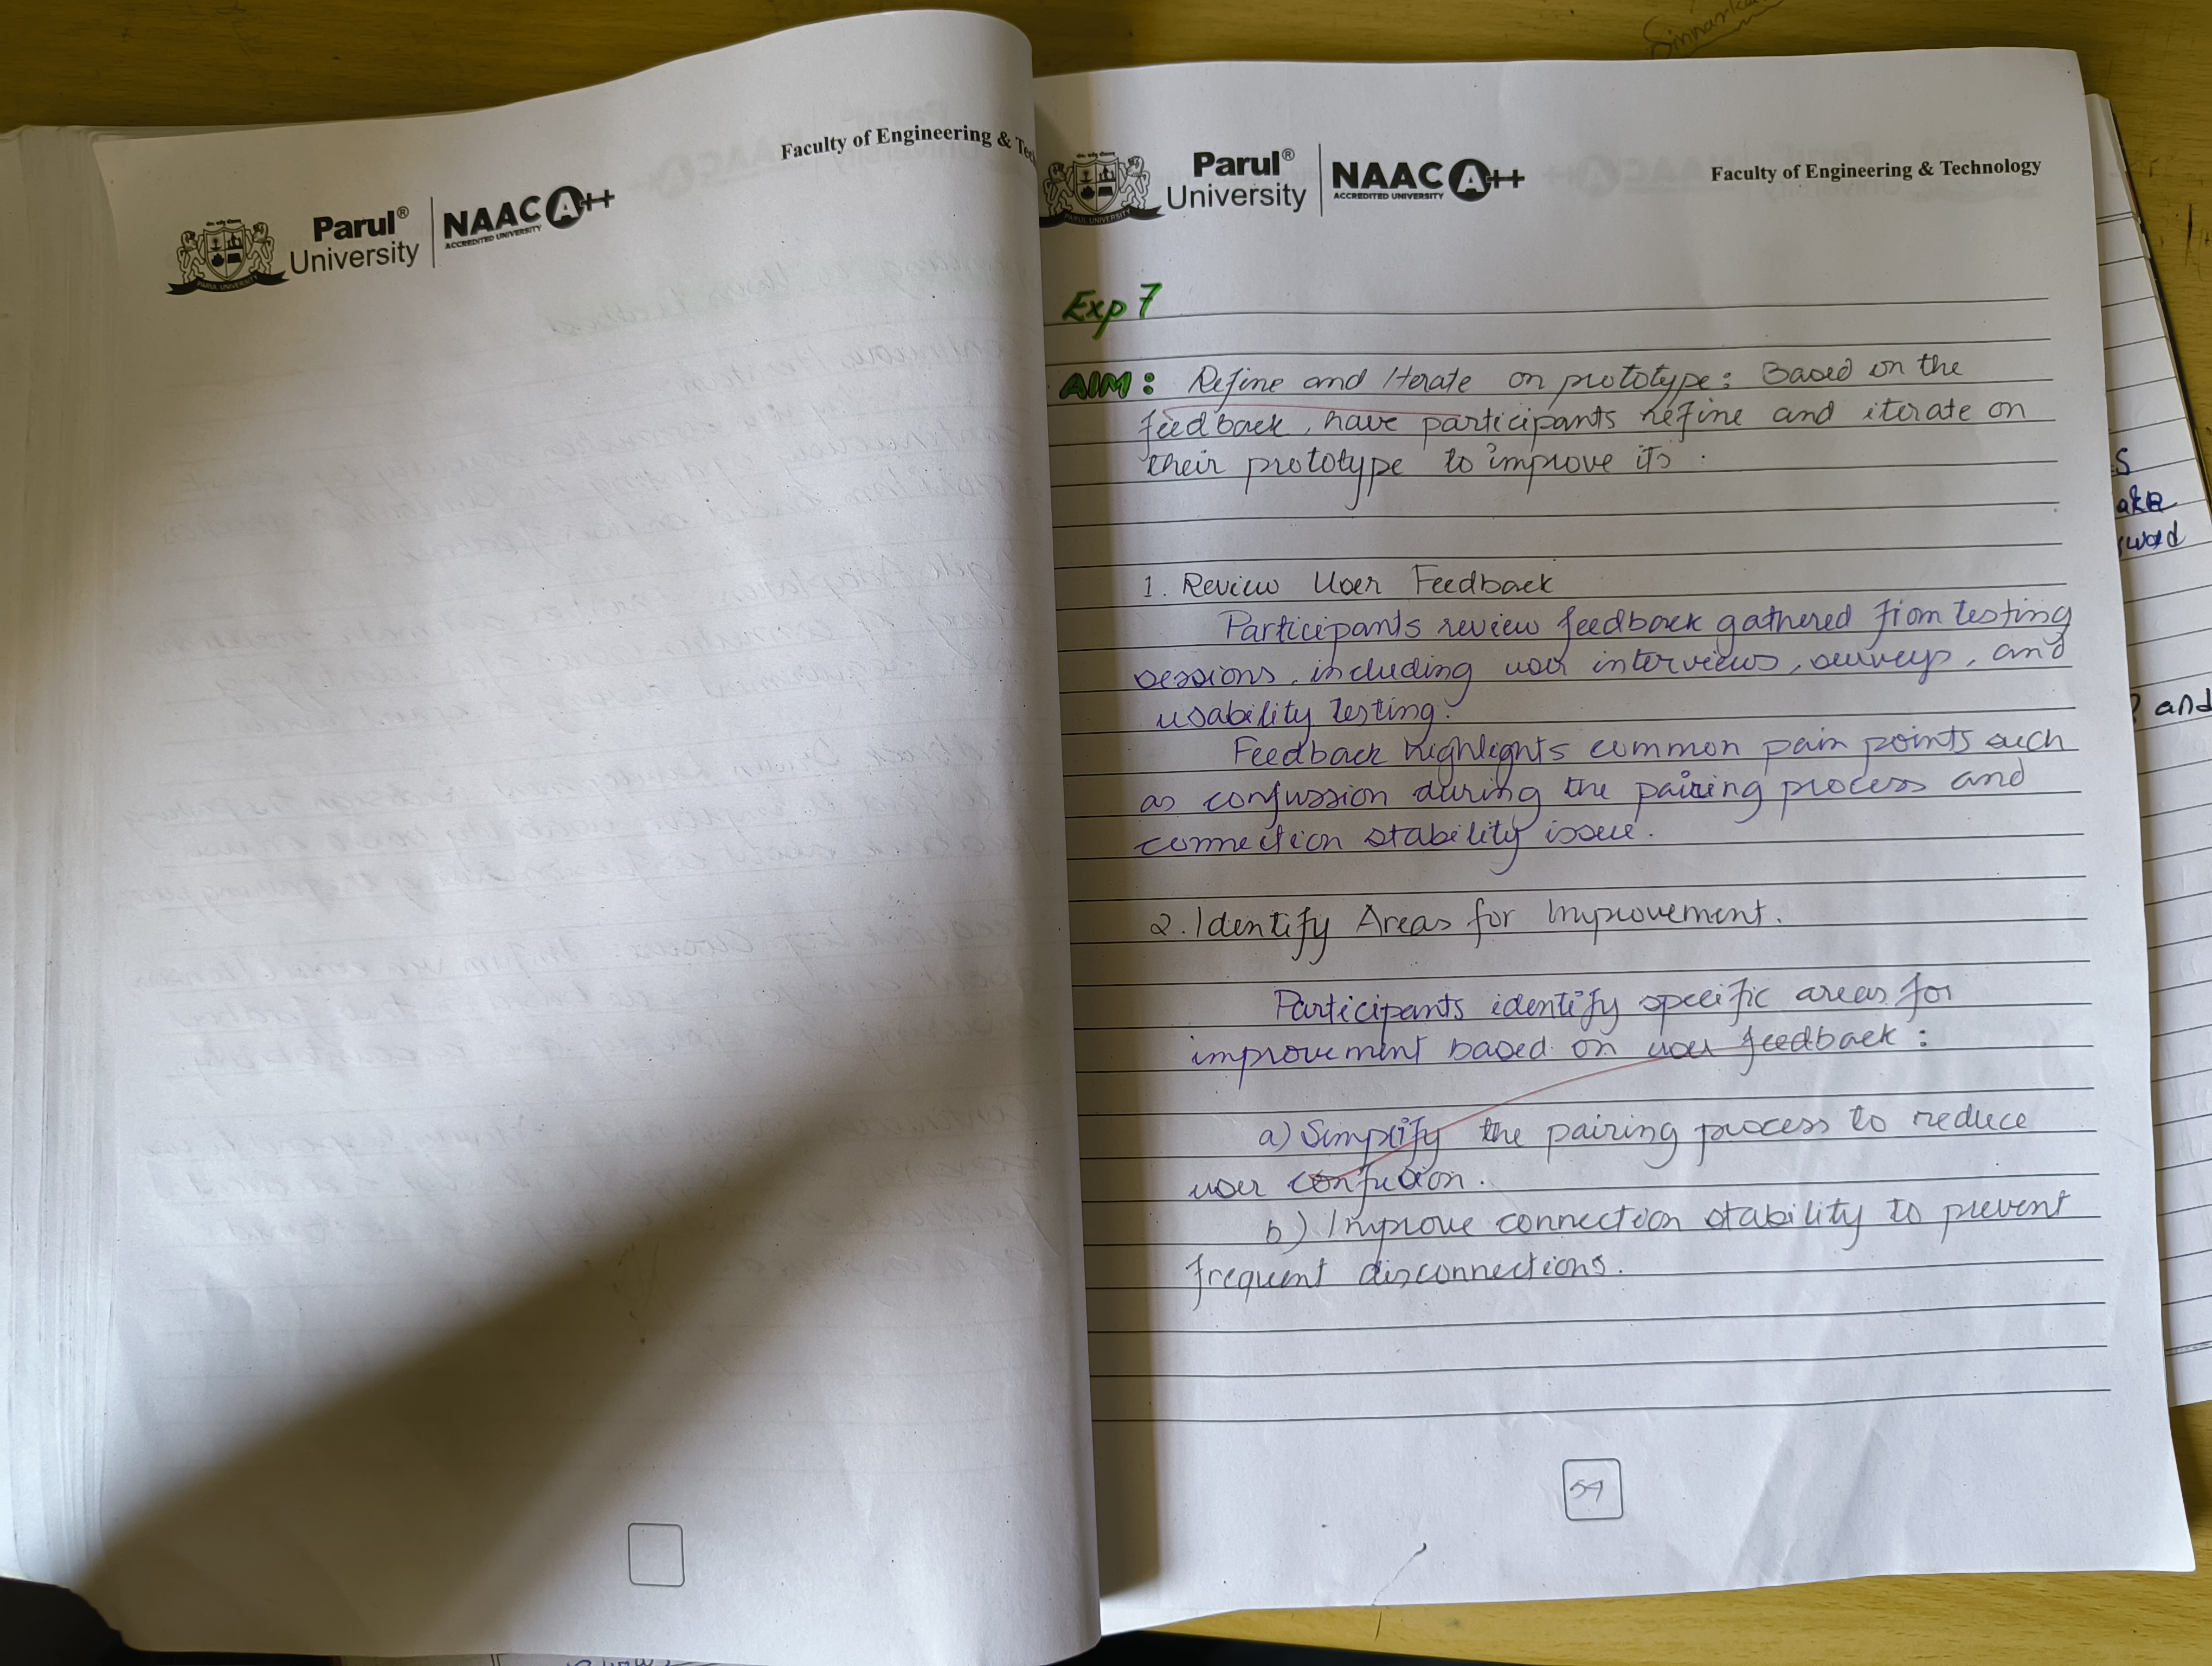 Faculty of Engineering & Tec
Parul®
University
NAAC A++
ACCREDITED UNIVERSITY
PARUL UNIVERSITY
Parul®
University
NAAC A++
ACCREDITED UNIVERSITY
PARUL UNIVERSITY
Faculty of Engineering & Technology
Exp 7
AIM: Refine and Iterate on prototype: Based on the
feedback, have participants refine and iterate on
their prototype to improve its.
1. Review User Feedback
Participants review feedback gathered from testing
sessions, including user interviews, surveys, and
usability testing.
Feedback highlights common pain points such
as confussion during the pairing process and
connection stability issue.
2. Identify Areas for Improvement.
Participants identify specific areas for
improvement based on user feedback:
a) Simplify the pairing process to reduce
user confusion.
b) Improve connection stability to prevent
frequent disconnections.
57
s
ake
word
? and